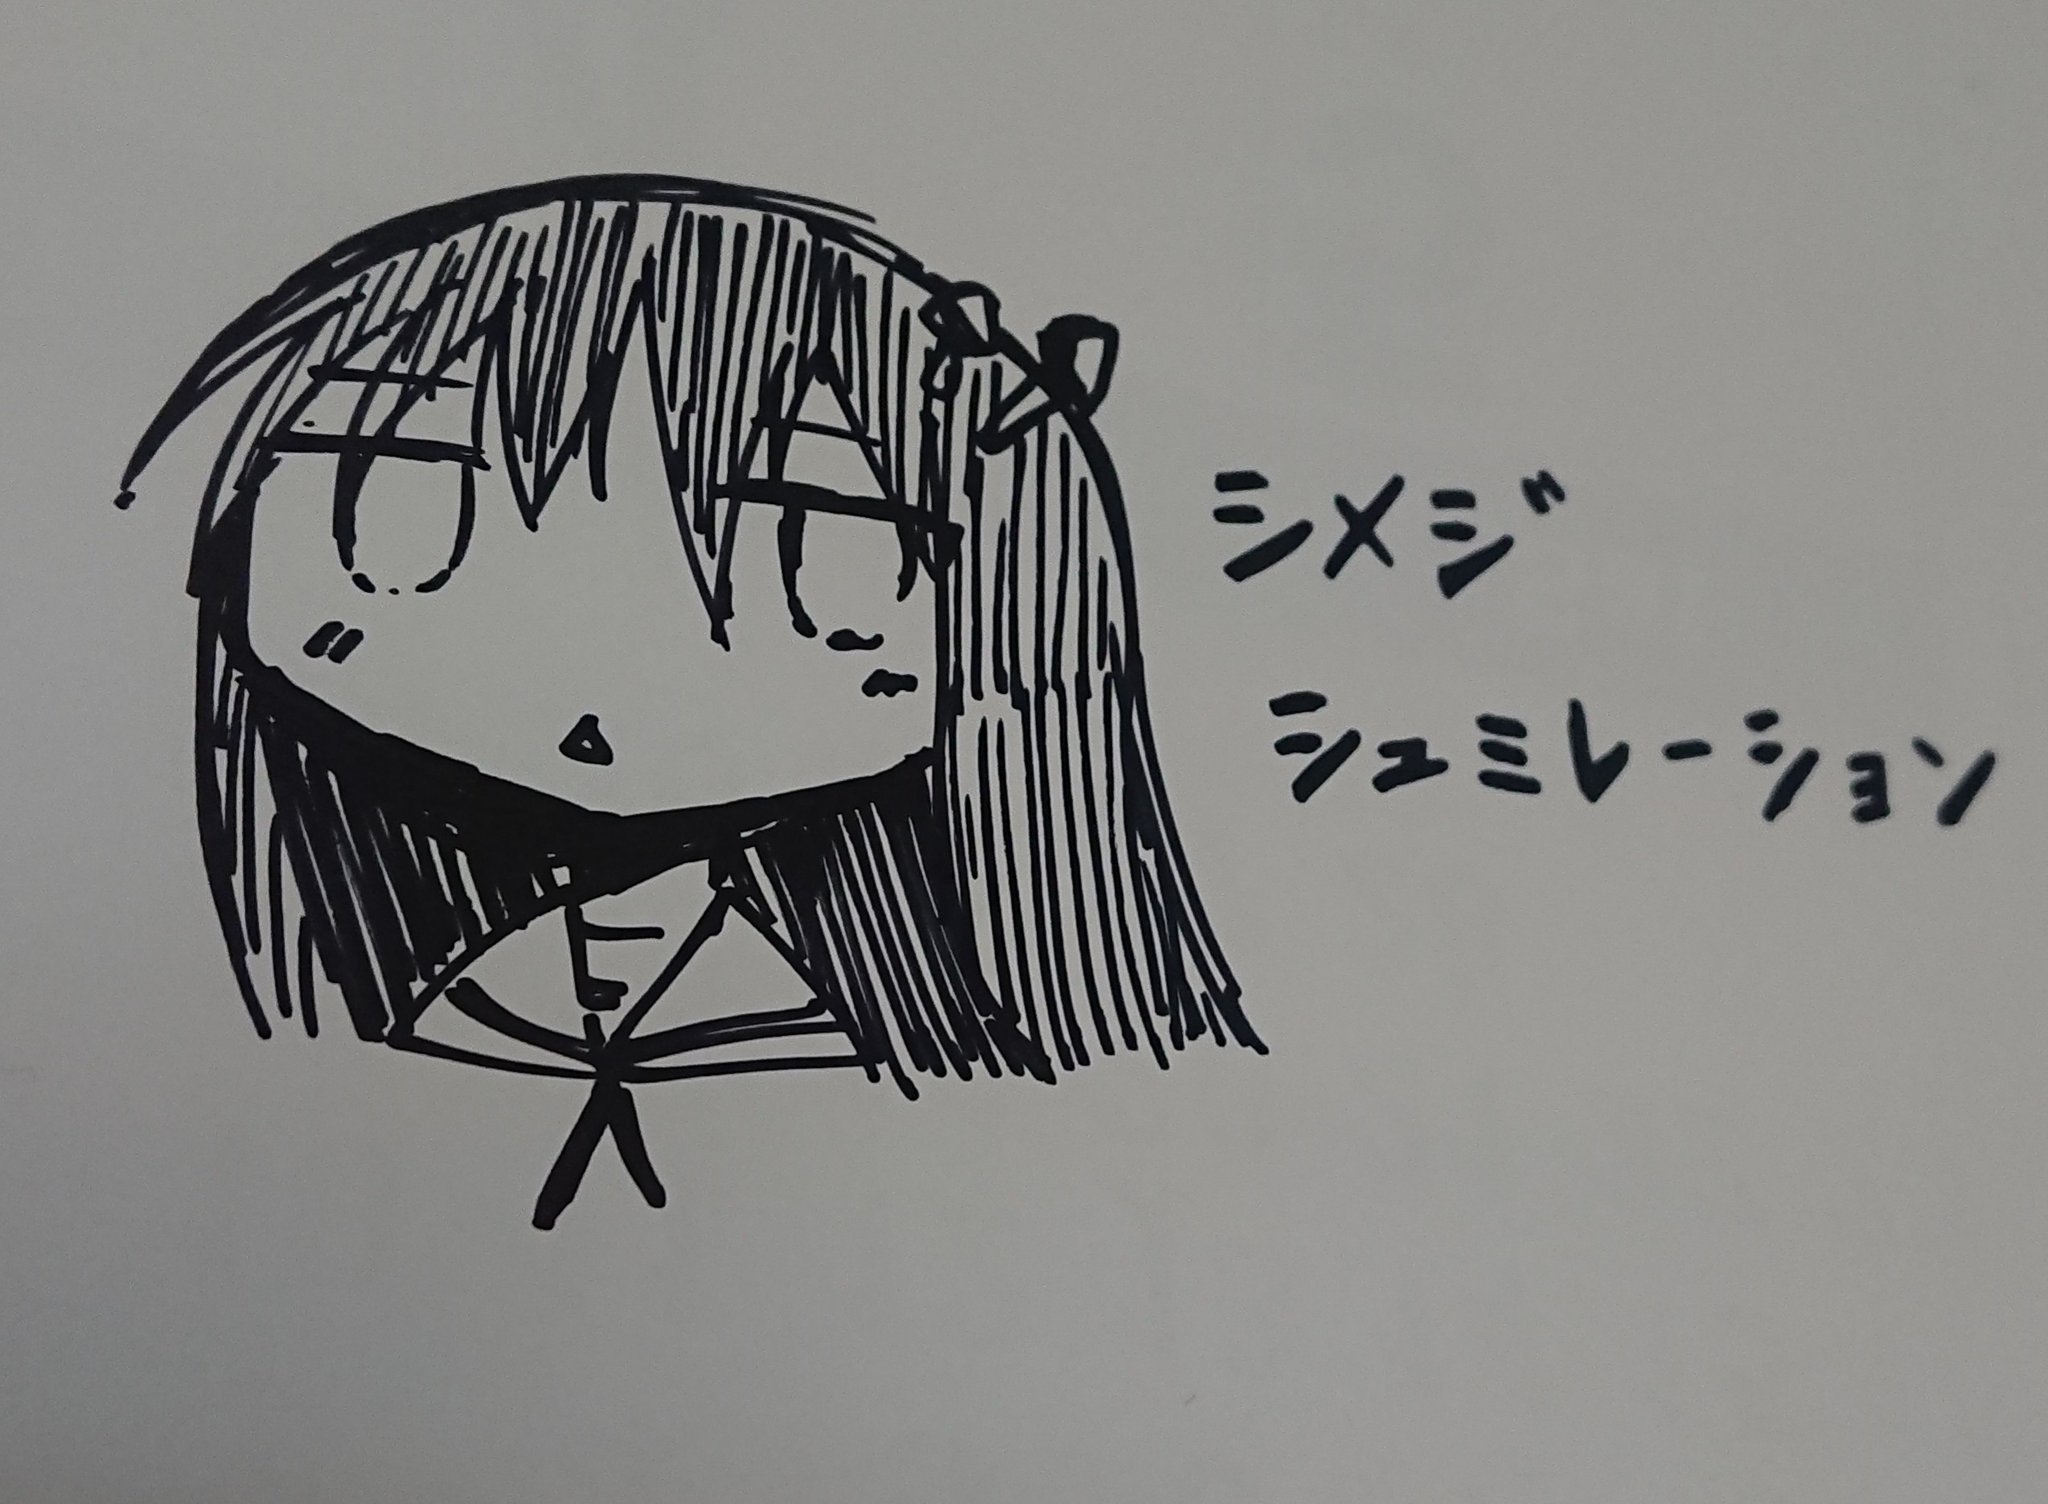 シメジ
シュミレーション